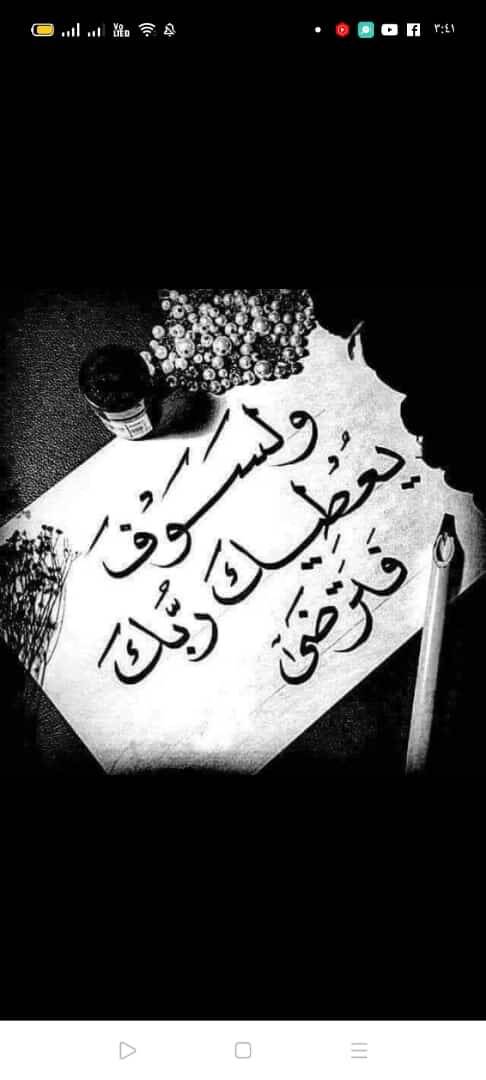 ٣:٤١
Vo
LTED
ولسَوْفَ
يُعْطِيكَ رَبُّكَ
فَتَرْضَىٰ